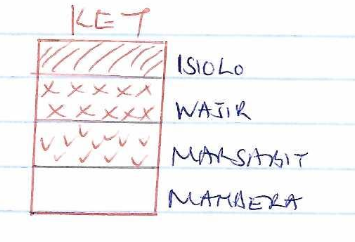 KEY
ISIOLO
WAJIR
MARSABIT
MANDERA